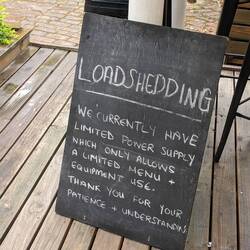 LOADSHEDDING
WE CURRENTLY HAVE
LIMITED POWER SUPPLY
WHICH ONLY ALLOWS
A LIMITED MENU +
EQUIPMENT USE.
THANK YOU FOR YOUR
PATIENCE + UNDERSTANDING